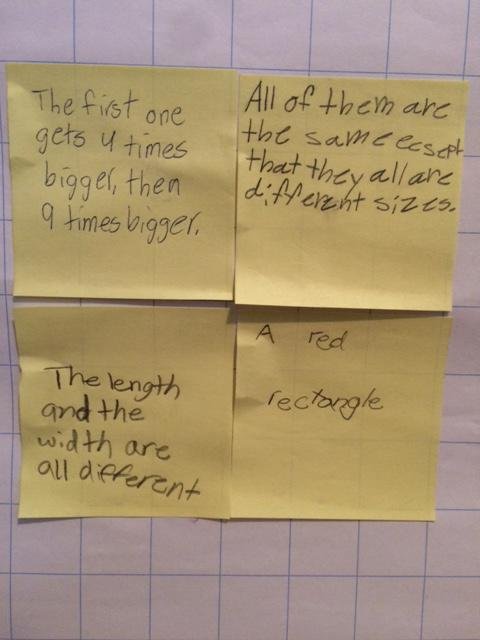 The first one
gets 4 times
bigger, then
9 times bigger.
All of them are
the same ecsept
that they all are
different sizes.
The length
and the
width are
all different
A red
rectangle